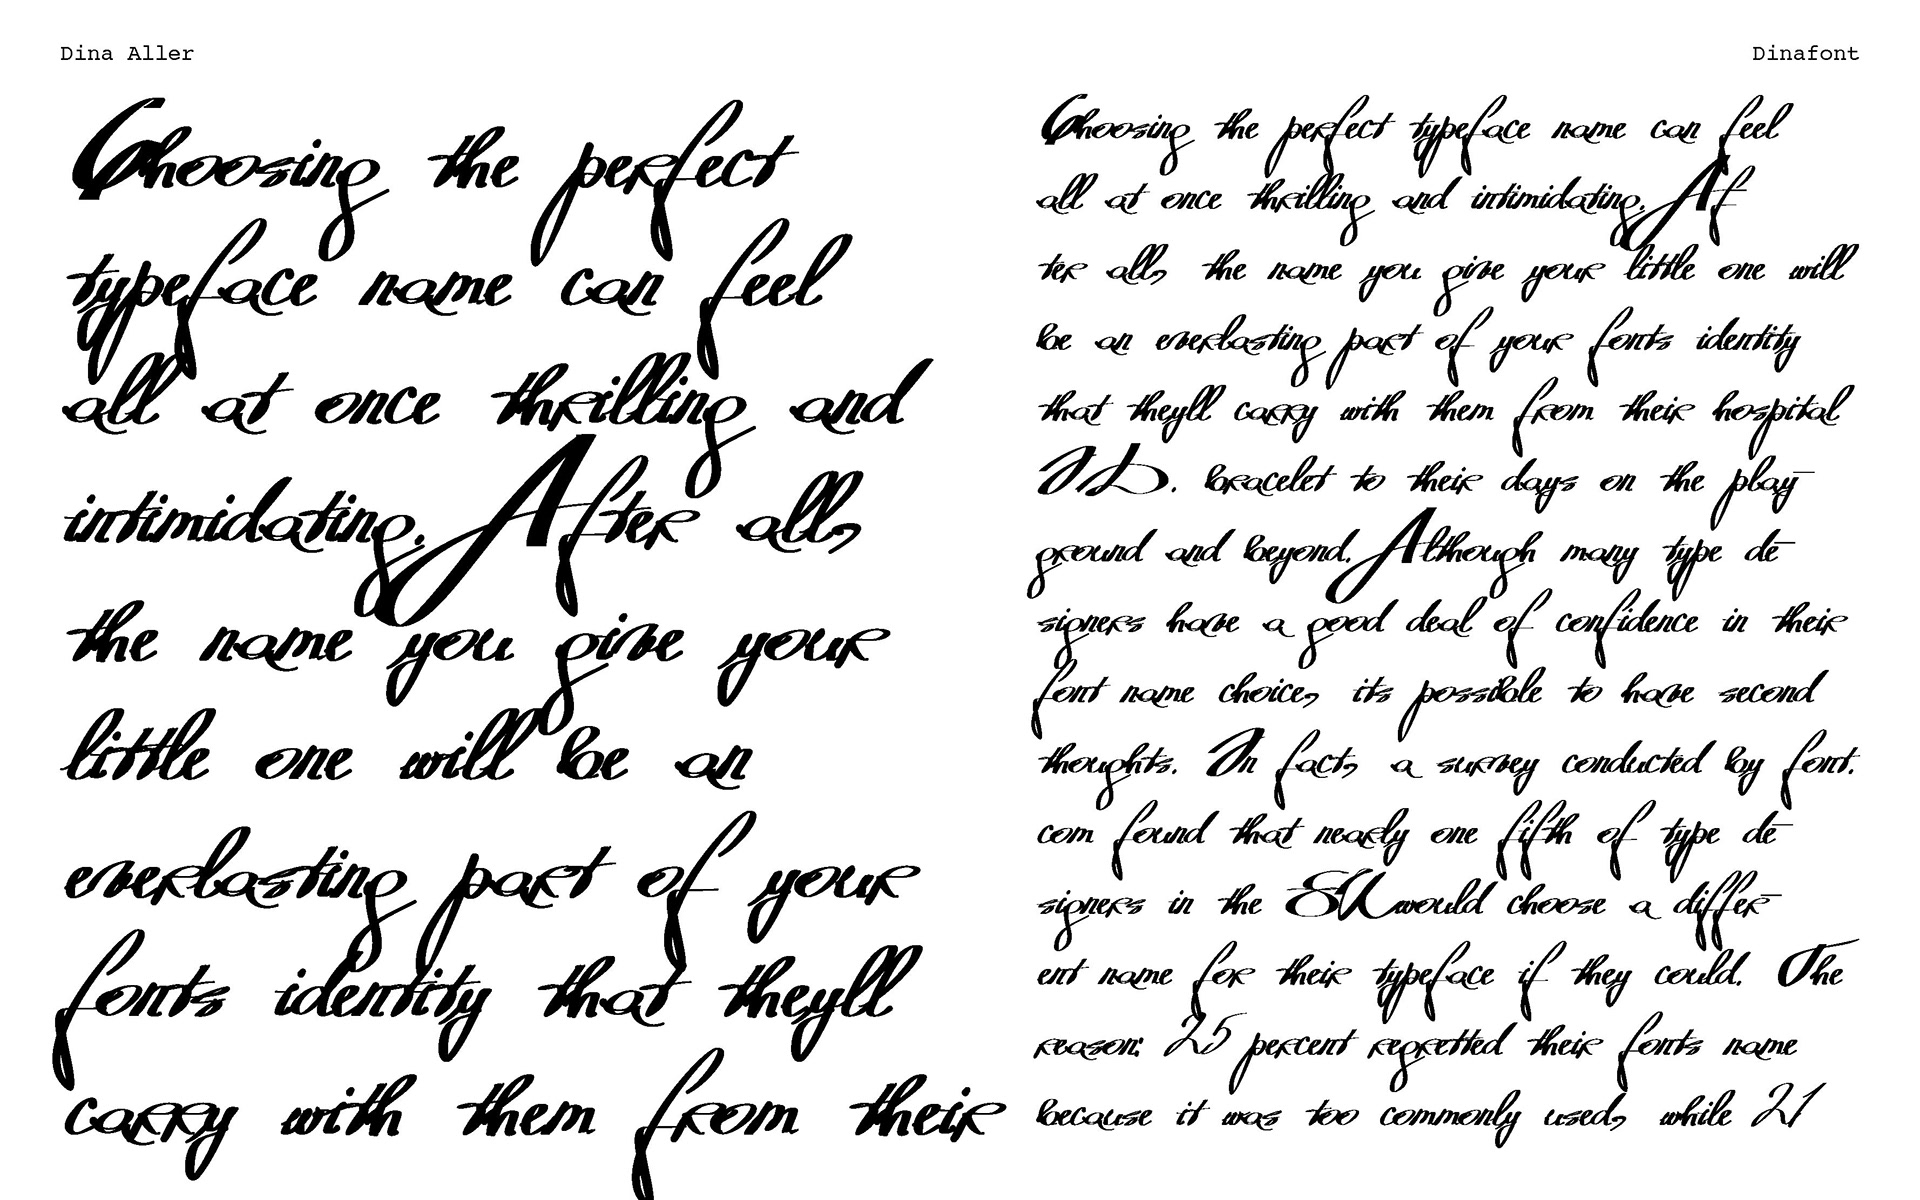 Dina Aller
Dinafont
Choosing the perfect
typeface name can feel
all at once thrilling and
intimidating. After all,
the name you give your
little one will be an
everlasting part of your
fonts identity that theyll
carry with them from their
Choosing the perfect typeface name can feel
all at once thrilling and intimidating. Af
ter all, the name you give your little one will
be an everlasting part of your fonts identity
that theyll carry with them from their hospital
ID. bracelet to their days on the play-
ground and beyond. Although many type de-
signers have a good deal of confidence in their
font name choice, its possible to have second
thoughts. In fact, a survey conducted by font.
com found that nearly one fifth of type de-
signers in the SU would choose a differ-
ent name for their typeface if they could. The
reason: 25 percent regretted their fonts name
because it was too commonly used, while 21